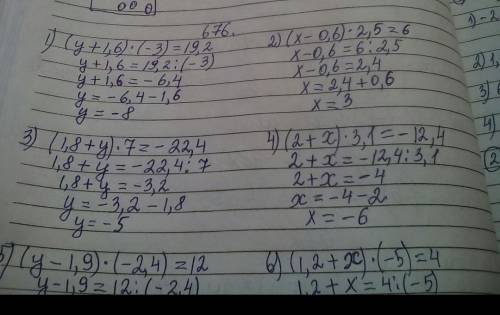 676.
1) (y+1,6)·(-3)=19,2
y+1,6=19,2:(-3)
y+1,6=-6,4
y=-6,4-1,6
y=-8
2) (x-0,6)·2,5=6
x-0,6=6:2,5
x-0,6=2,4
x=2,4+0,6
x=3
3) (1,8+y)·7=-22,4
1,8+y=-22,4:7
1,8+y=-3,2
y=-3,2-1,8
y=-5
4) (2+x)·3,1=-12,4
2+x=-12,4:3,1
2+x=-4
x=-4-2
x=-6
5) (y-1,9)·(-2,4)=12
y-1,9=12:(-2,4)
6) (1,2+x)·(-5)=4
1,2+x=4:(-5)
1)-2
2)1,
3)
4)